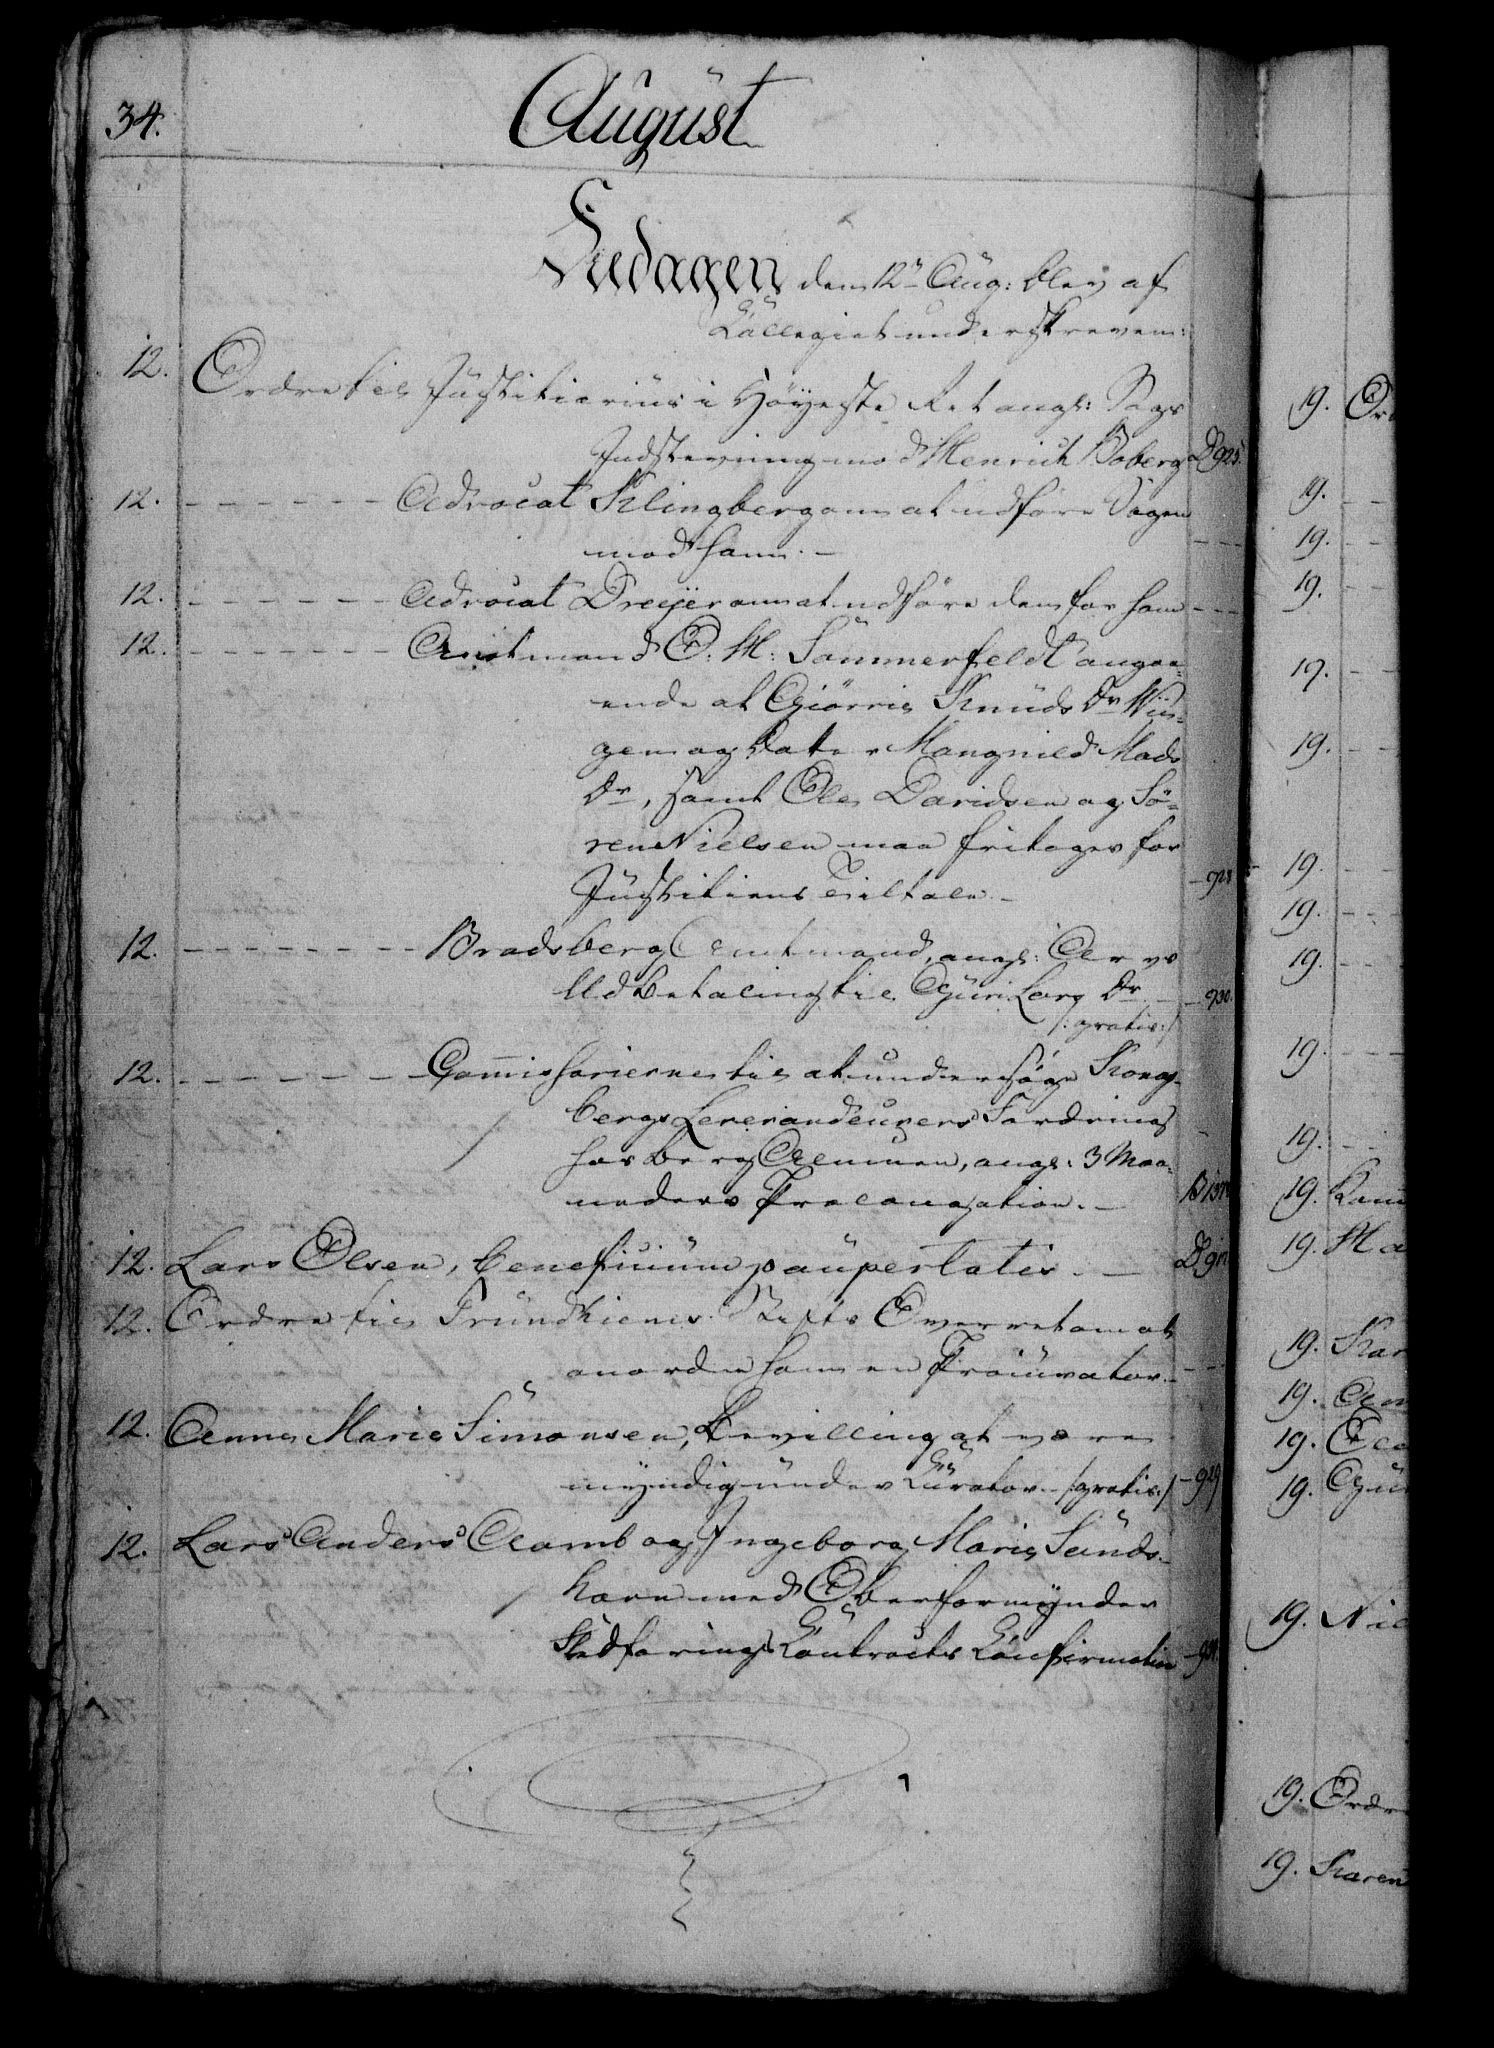 34. August
Fredagen den 12te Aug: blev af
Collegiet underskreven:
12. Ordre til Justitiarius i Höyeste Ret angl: Sags
Indstevning mod Henrich Boberg D 925.
12. - - - - - - Advocat Klingberg om at udföre Sagen
mod ham. - - - -
12. - - - - - - Advocat Dreyer om at udföre den for ham - - -
12. - - - - - - Amtmand O. H: Sommerfeldt angaa-
ende at Giörris Knuds Dr
gen og Dater Mangnild Mads
Dr, samt Ole Davidsen og Sö-
ren Nielsen maa fritages for
Justitiens Tiltale. - - 928
12. - - - - - - - Bradsberg Amtmand, angl: Arvs
Udbetaling til Guri Lars Dr. - - 930.
/: gratis :/
12. - - - - - - Commissarierne til at undersöge Kongs-
bergs Leverandeurers Fordring
hos Berg Casernen, angl: 3 Maa-
neders Prolongation. -
12. Lars Olsen, beneficium paupertatis. -
12. Ordre til Trundhiems Stifts Overret om at
anordne ham en Procurator. - - -
12. Anne Marie Simonsen, Bevilling at være
myndig under Curator. /: gratis :/ - 929
12. Lars Anders Aamb og Ingeborg Marie Sunds-
med Oberformynder
Contracts Confirmation
19. Or
19. - -
19. - -
19. - -
19. - -
19. - -
19. - -
19. - -
19. - -
19. - -
19. - -
19.
19. Ma
19. Kar
19.
19.
19.
19. Nie
19. Ordre
19. Karen